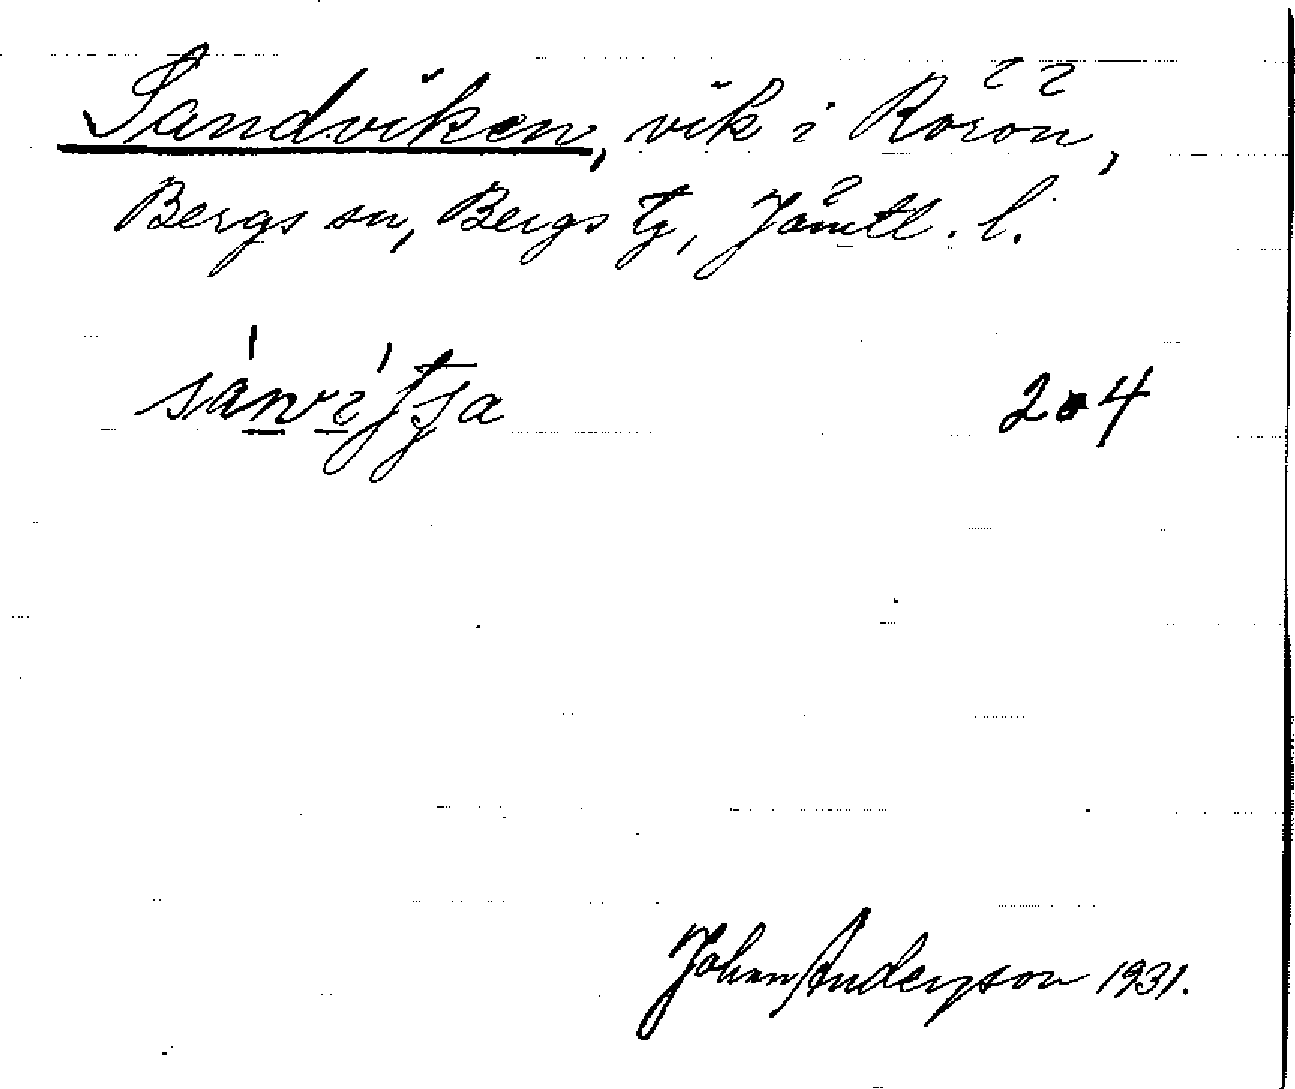 Sandviken, vik i Rörön,
Bergs sn, Bergs tg, Jämtl. l.
204
Johan Anderson 1931.